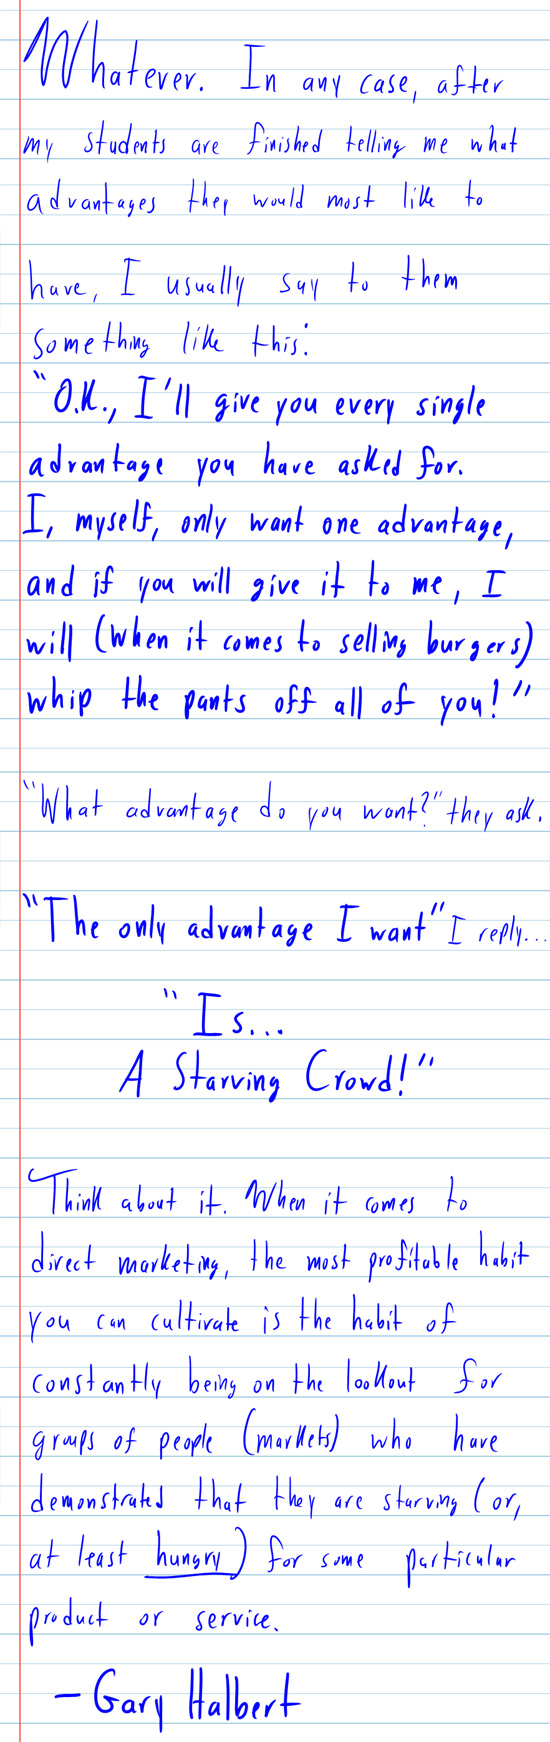 Whatever. In any case, after
my students are finished telling me what
advantages they would most like to
have, I usually say to them
something like this:
"O.K., I'll give you every single
advantage you have asked for.
I, myself, only want one advantage,
and if you will give it to me, I
will (when it comes to selling burgers)
whip the pants off all of you!"
"What advantage do you want?" they ask.
"The only advantage I want" I reply...
"Is...
A Starving Crowd!"
Think about it. When it comes to
direct marketing, the most profitable habit
you can cultivate is the habit of
constantly being on the lookout for
groups of people (markets) who have
demonstrated that they are starving (or,
at least hungry) for some particular
product or service.
- Gary Halbert